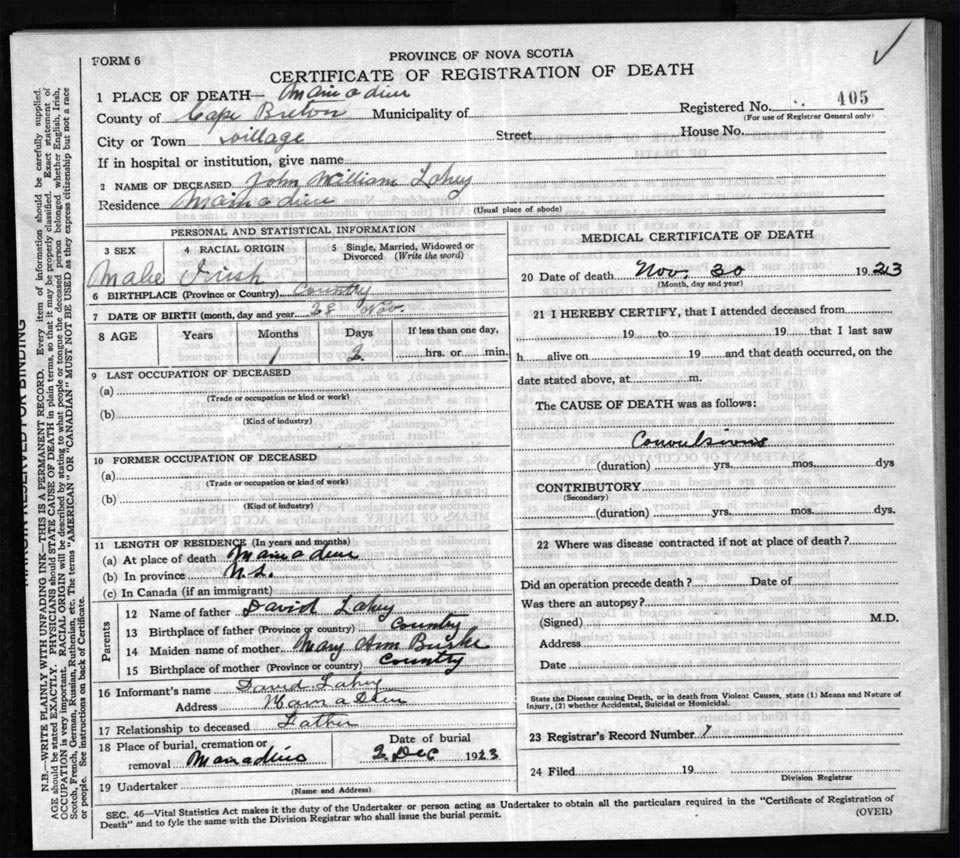 FORM 6
PROVINCE OF NOVA SCOTIA
CERTIFICATE OF REGISTRATION OF DEATH
1 PLACE OF DEATH— Mainadieu
County of Cape Breton Municipality of
Registered No. 405
(For use of Registrar General only)
City or Town village Street House No.
If in hospital or institution, give name
2 NAME OF DECEASED John William Lahey
Residence Mainadieu
(Usual place of abode)
PERSONAL AND STATISTICAL INFORMATION
3 SEX 4 RACIAL ORIGIN 5 Single, Married, Widowed or Divorced (Write the word)
Male Irish
6 BIRTHPLACE (Province or Country) Country
7 DATE OF BIRTH (month, day and year 28 Nov.
8 AGE Years Months Days If less than one day,
2 hrs. or min.
9 LAST OCCUPATION OF DECEASED
(a)
(Trade or occupation or kind or work)
(b)
(Kind of industry)
10 FORMER OCCUPATION OF DECEASED
(a)
(Trade or occupation or kind of work)
(b)
(Kind of industry)
11 LENGTH OF RESIDENCE (In years and months)
(a) At place of death Mainadieu
(b) In province N.S.
(c) In Canada (if an immigrant)
Parents
12 Name of father David Lahey
13 Birthplace of father (Province or country) Country
14 Maiden name of mother Mary Ann Burke
15 Birthplace of mother (Province or country) Country
16 Informant's name David Lahey
Address Mainadieu
17 Relationship to deceased Father
18 Place of burial, cremation or removal Mainadieu
Date of burial
2 Dec 1923
19 Undertaker
(Name and Address)
MEDICAL CERTIFICATE OF DEATH
20 Date of death Nov. 30 1923
(Month, day and year)
21 I HEREBY CERTIFY, that I attended deceased from
19 to 19 that I last saw
h alive on 19 and that death occurred, on the
date stated above, at m.
The CAUSE OF DEATH was as follows:
Convulsions
(duration) yrs. mos. dys
CONTRIBUTORY
(Secondary)
(duration) yrs. mos. dys.
22 Where was disease contracted if not at place of death?
Did an operation precede death? Date of
Was there an autopsy?
(Signed) M.D.
Address
Date
State the Disease causing Death, or in death from Violent Causes, state (1) Means and Nature of
Injury, (2) whether Accidental, Suicidal or Homicidal.
23 Registrar's Record Number
24 Filed 19
Division Registrar
SEC. 46—Vital Statistics Act makes it the duty of the Undertaker or person acting as Undertaker to obtain all the particulars required in the "Certificate of Registration of
Death" and to fyle the same with the Division Registrar who shall issue the burial permit.
(OVER)
MARGIN RESERVED FOR BINDING
N.B.—WRITE PLAINLY WITH UNFADING INK—THIS IS A PERMANENT RECORD. Every item of information should be carefully supplied.
AGE should be stated EXACTLY. PHYSICIANS should STATE CAUSE OF DEATH in plain terms, so that it may be properly classified. Exact statement of
OCCUPATION is very important. RACIAL ORIGIN will be described by stating to what people or tongue the deceased person belonged whether English, Irish,
Scotch, French, German, Russian, Ruthenian, etc. The terms "AMERICAN" OR "CANADIAN" MUST NOT BE USED as they express citizenship but not a race
or people. See instructions on back of Certificate.